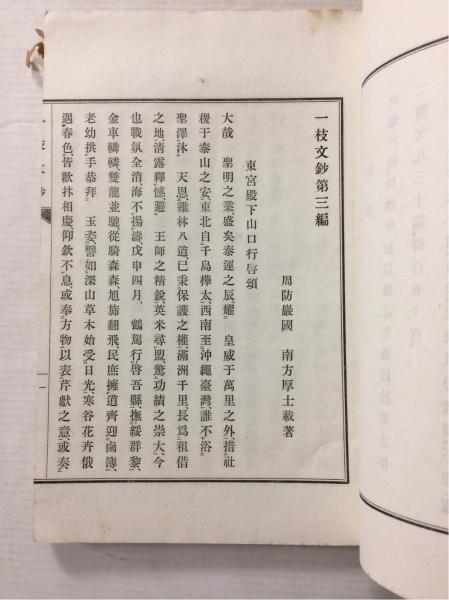 一枝文鈔第三編
周防巖國　南方厚士載著
東宮殿下山口行啓頌
大哉　聖明之業盛矣泰運之辰耀　皇威于萬里之外、措社
稷于泰山之安、東北自千島樺太、西南至沖繩臺灣、誰不浴
聖澤沐　天恩、雞林八道、已秉保護之權、滿洲千里、長爲租借
之地、清露釋憾遜　王師之精銳、英米尋盟、驚功績之崇大、今
也戰氛全消、海不揚濤、戊申四月、　鶴駕行啓吾縣、撫綏群黎、
金車轔轔、雙龍並馳、從騎森森、旭旆翻飛、民庶擁道、齊迎鹵簿、
老幼拱手恭拜　玉姿、譬如深山草木始受日光、寒谷花卉俄
遇春色、皆歡抃相慶、仰欽不息、或奉方物以表芹獻之意、或奏
一枝文鈔
一